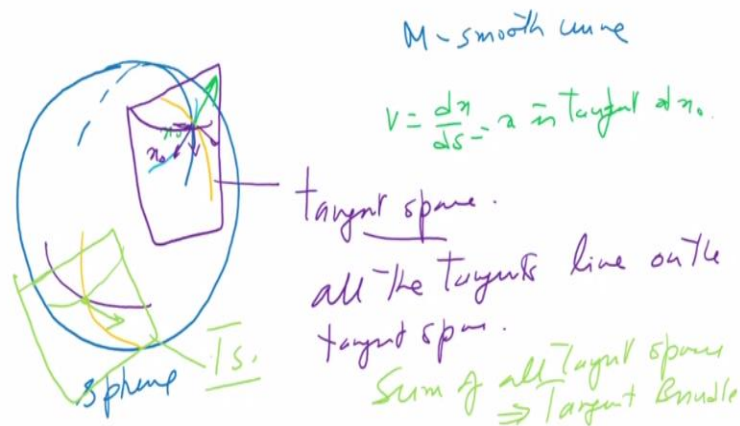 M - smooth curve
V = dx/ds = x is tangent at x₀.
x₀
x₀
V
tangent space.
all the tangents line on the
tangent span.
Ts.
sphere
Sum of all Tangent spaces
⇒ Tangent Bundle